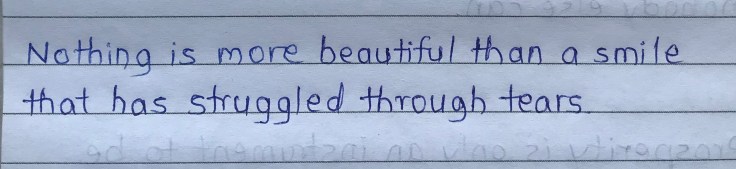 Nothing is more beautiful than a smile
that has struggled through tears.